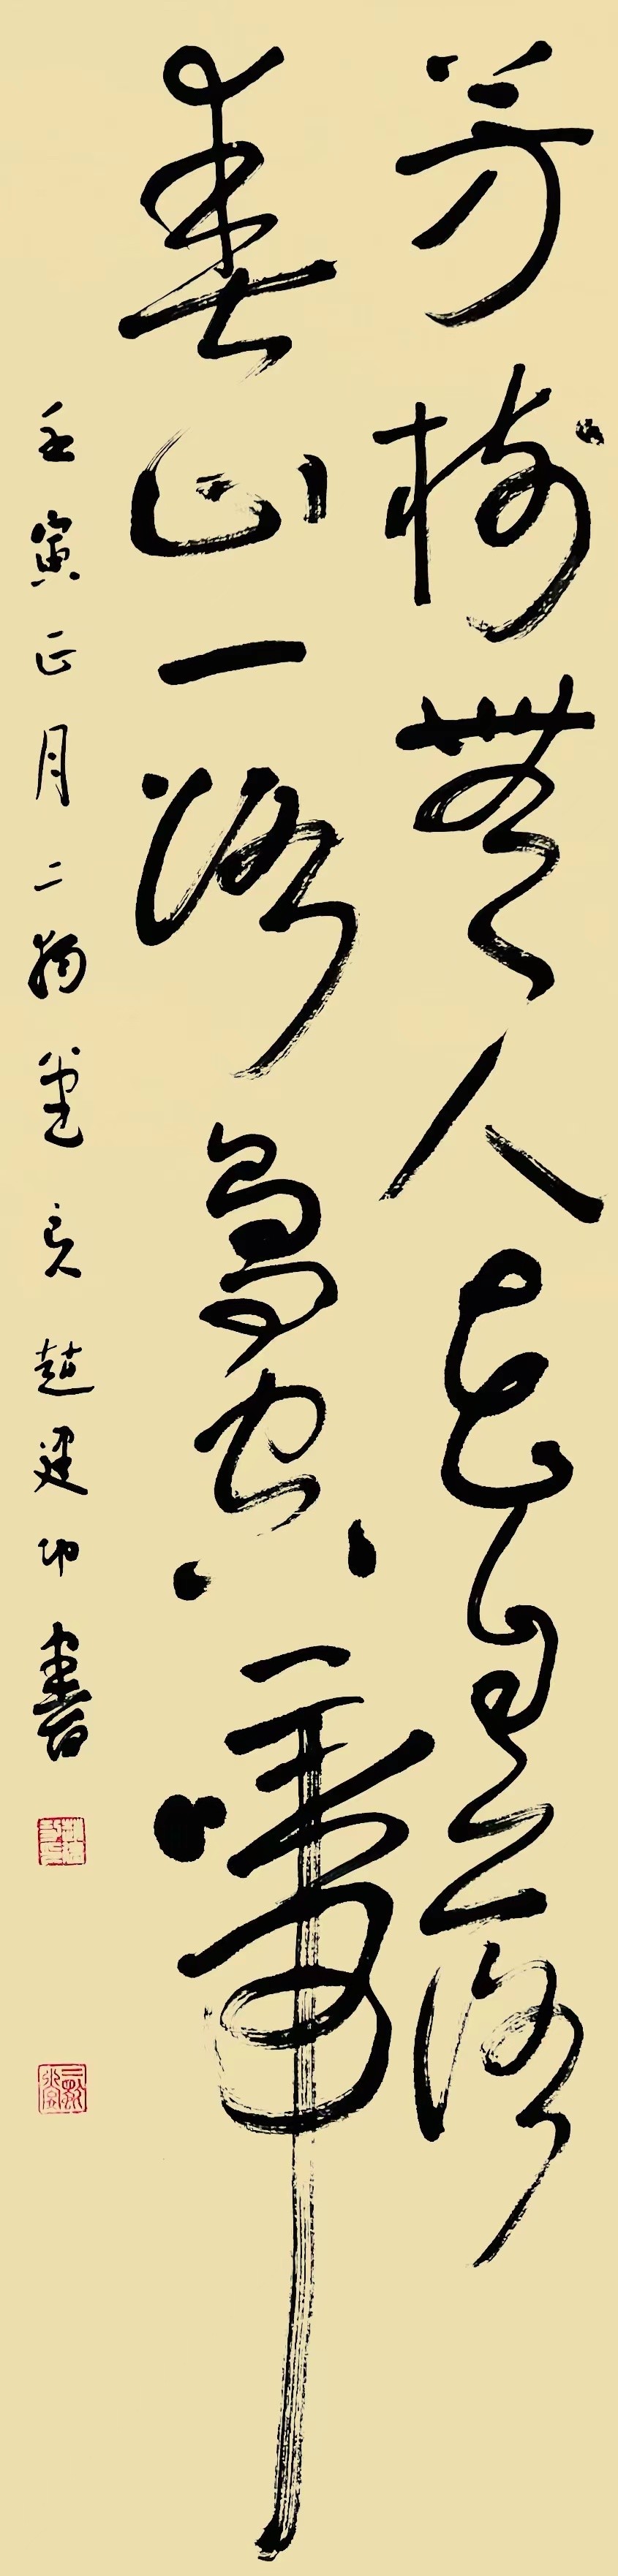 芳樹無人花自落
春山一路鳥空啼
壬寅正月二獨堂主趙建功書